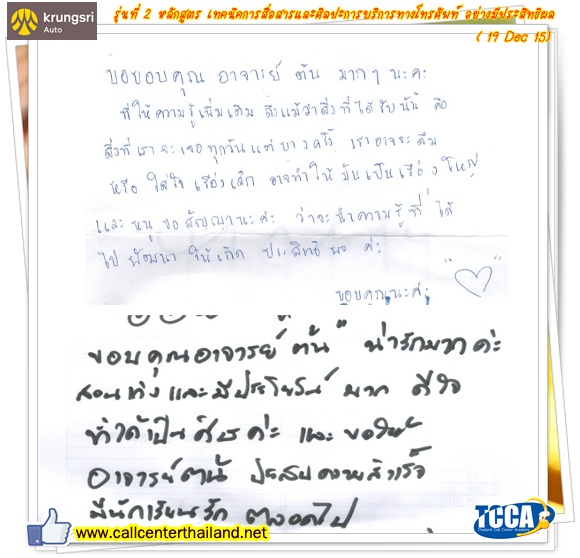 krungsri
Auto
รุ่นที่ 2 หลักสูตร เทคนิคการสื่อสารและศิลปะการบริการทางโทรศัพท์ อย่างมีประสิทธิผล
( 19 Dec 15)
ขอขอบคุณ อาจารย์ ต้น มากๆ นะคะ
ที่ให้ความรู้เพิ่มเติม ถึงแม้ว่าสิ่งที่ได้รับนั้น คือ
สิ่งที่เราจะเจอทุกวันแต่บางครั้ง เราอาจจะลืม
หรือ ใส่ใจ เรื่องเล็ก อาจทำให้ มันเป็นเรื่องใหญ่
และ หนู ขอสัญญานะค่ะ ว่าจะนำความรู้ที่ ได้
ไป พัฒนา ให้เกิด ประสิทธิผล ค่ะ
ขอบคุณนะค่ะ
ขอบคุณอาจารย์ ต้น" น่ารักมากค่ะ
สอนเก่งและมีประโยชน์ มาก ดีใจ
ที่ได้เป็นศิษย์ค่ะ และขอให้
อาจารย์ต้น ประสบความสำเร็จ
มีนักเรียนรัก ตลอดไป
www.callcenterthailand.net
TCCA
Thailand Call Center Academy